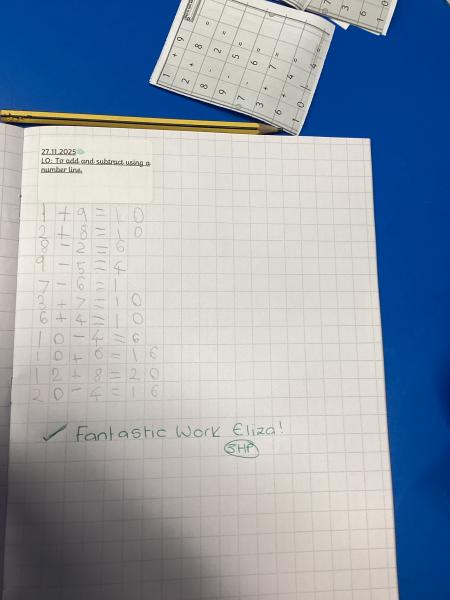 1 + 9 =
2 + 8 =
8 - 2 =
9 - 5 =
7 - 6 =
3 + 7 =
6 + 4 =
10 - 4 =
27.11.2025
LO: To add and subtract using a
number line.
1 + 9 = 10
2 + 8 = 10
8 - 2 = 6
9 - 5 = 4
7 - 6 = 1
3 + 7 = 10
6 + 4 = 10
10 - 4 = 6
10 + 6 = 16
12 + 8 = 20
20 - 4 = 16
✓ Fantastic Work Eliza!
SHP